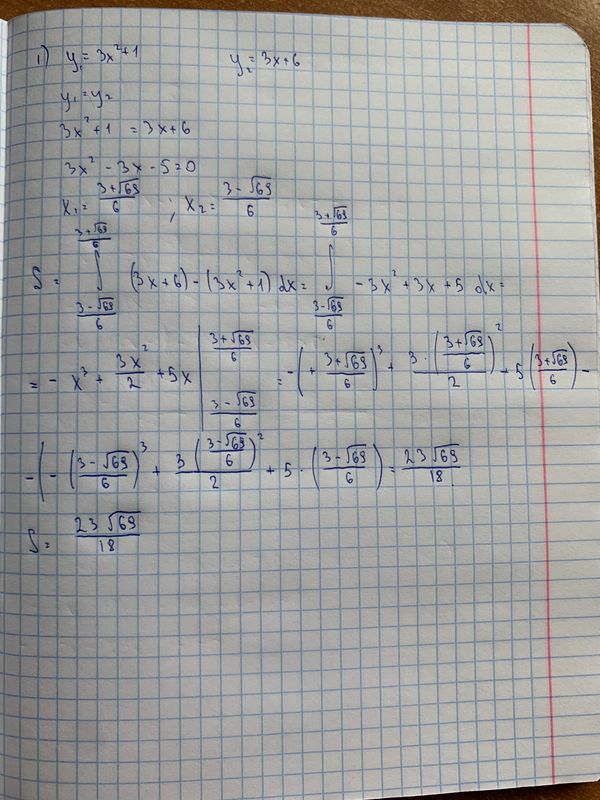 1) y₁ = 3x²+1 y₂ = 3x+6
y₁ = y₂
3x²+1 = 3x+6
3x² - 3x - 5 = 0
x₁ = \frac{3+\sqrt{69}}{6} ; x₂ = \frac{3-\sqrt{69}}{6}
S = \int_{\frac{3-\sqrt{69}}{6}}^{\frac{3+\sqrt{69}}{6}} (3x+6)-(3x²+1) dx = \int_{\frac{3-\sqrt{69}}{6}}^{\frac{3+\sqrt{69}}{6}} -3x²+3x+5 dx =
= -x³ + \frac{3x²}{2} + 5x |_{\frac{3-\sqrt{69}}{6}}^{\frac{3+\sqrt{69}}{6}} = -(+\frac{3+\sqrt{69}}{6})³ + \frac{3·(\frac{3+\sqrt{69}}{6})²}{2} + 5(\frac{3+\sqrt{69}}{6}) -
-(-(\frac{3-\sqrt{69}}{6})³ + \frac{3(\frac{3-\sqrt{69}}{6})²}{2} + 5·(\frac{3-\sqrt{69}}{6}) = \frac{23\sqrt{69}}{18}
S = \frac{23\sqrt{69}}{18}